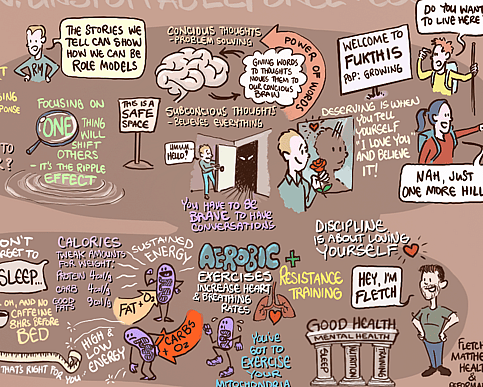 THE STORIES WE
TELL CAN SHOW
HOW WE CAN BE
ROLE MODELS
RM
CONCIOUS THOUGHTS
- PROBLEM SOLVING
GIVING WORDS
TO THOUGHTS
MOVES THEM TO
OUR CONCIOUS
BRAIN
POWER OF WORDS
SUBCONCIOUS THOUGHTS
- BELIEVES EVERYTHING
WELCOME TO
FUKTHIS
POP: GROWING
DO YOU WANT
TO LIVE HERE
NAH, JUST
ONE MORE HILL
FOCUSING ON
ONE THING
WILL
SHIFT
OTHERS
- IT'S THE RIPPLE
EFFECT
THIS IS A
SAFE
SPACE
UMM..
HELLO?
YOU HAVE TO BE
BRAVE TO HAVE
CONVERSATIONS
DESERVING IS WHEN
YOU TELL
YOURSELF
"I LOVE YOU"
AND BELIEVE
IT!
SLEEP...
AND NO
CAFFEINE
8HRS BEFORE
BED
THAT'S RIGHT FOR YOU
CALORIES
TWEAK AMOUNTS
FOR WEIGHT:
PROTEIN 4cal/g
CARB 4cal/g
GOOD
FATS 9cal/g
SUSTAINED
ENERGY
FAT + O2
HIGH &
LOW
ENERGY
CARBS
+ O2
AEROBIC +
EXERCISES
INCREASE HEART
& BREATHING
RATES
RESISTANCE
TRAINING
YOU'VE
GOT TO
EXERCISE
YOUR
MITOCHONDRIA
DISCIPLINE
IS ABOUT LOVING
YOURSELF
HEY, I'M
FLETCH
GOOD HEALTH
MENTAL HEALTH
SLEEP
NUTRITION
TRAINING